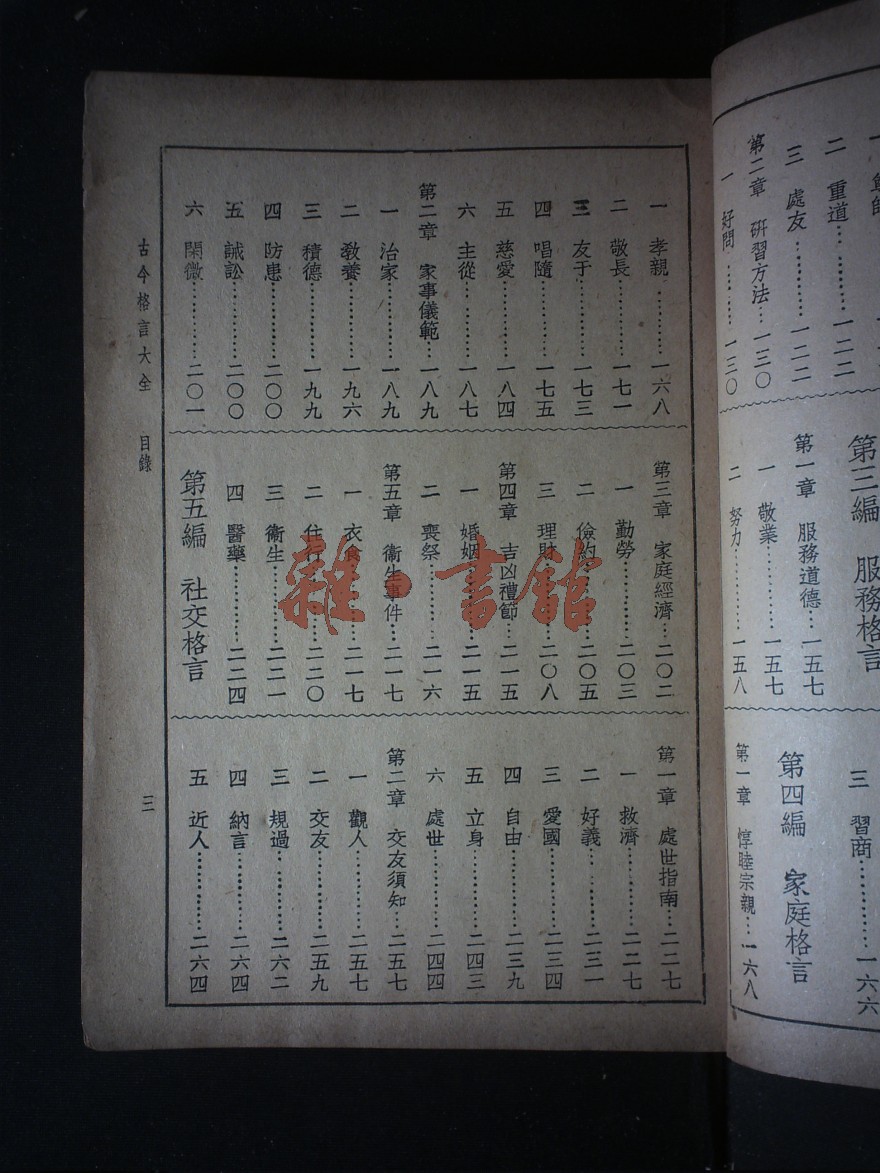 二 重道……一二二
三 處友……一二二
第二章 研習方法…一三〇
一 好問……一三〇
第三編 服務格言
第一章 服務道德…一五七
一 敬業……一五七
二 努力……一五八
三 習商……一六六
第四編 家庭格言
第一章 惇睦宗親…一六八
一 孝親……一六八
二 敬長……一七一
三 友于……一七三
四 唱隨……一七五
五 慈愛……一八四
六 主從……一八七
第二章 家事儀範…一八九
一 治家……一八九
二 教養……一九六
三 積德……一九九
四 防患……二〇〇
五 誡訟……二〇〇
六 閑微……二〇一
第三章 家庭經濟…二〇二
一 勤勞……二〇三
二 儉約……二〇五
三 理財……二〇八
第四章 吉凶禮節…二一五
一 婚姻……二一五
二 喪祭……二一六
第五章 衞生事件…二一七
一 衣食……二一七
二 住行……二二〇
三 衞生……二二一
四 醫藥……二二四
第五編 社交格言
第一章 處世指南…二二七
一 救濟……二二七
二 好義……二三一
三 愛國……二三四
四 自由……二三九
五 立身……二四三
六 處世……二四四
第二章 交友須知…二五七
一 觀人……二五七
二 交友……二五九
三 規過……二六二
四 納言……二六四
五 近人……二六四
古今格言大全 目錄 三
雜·書館